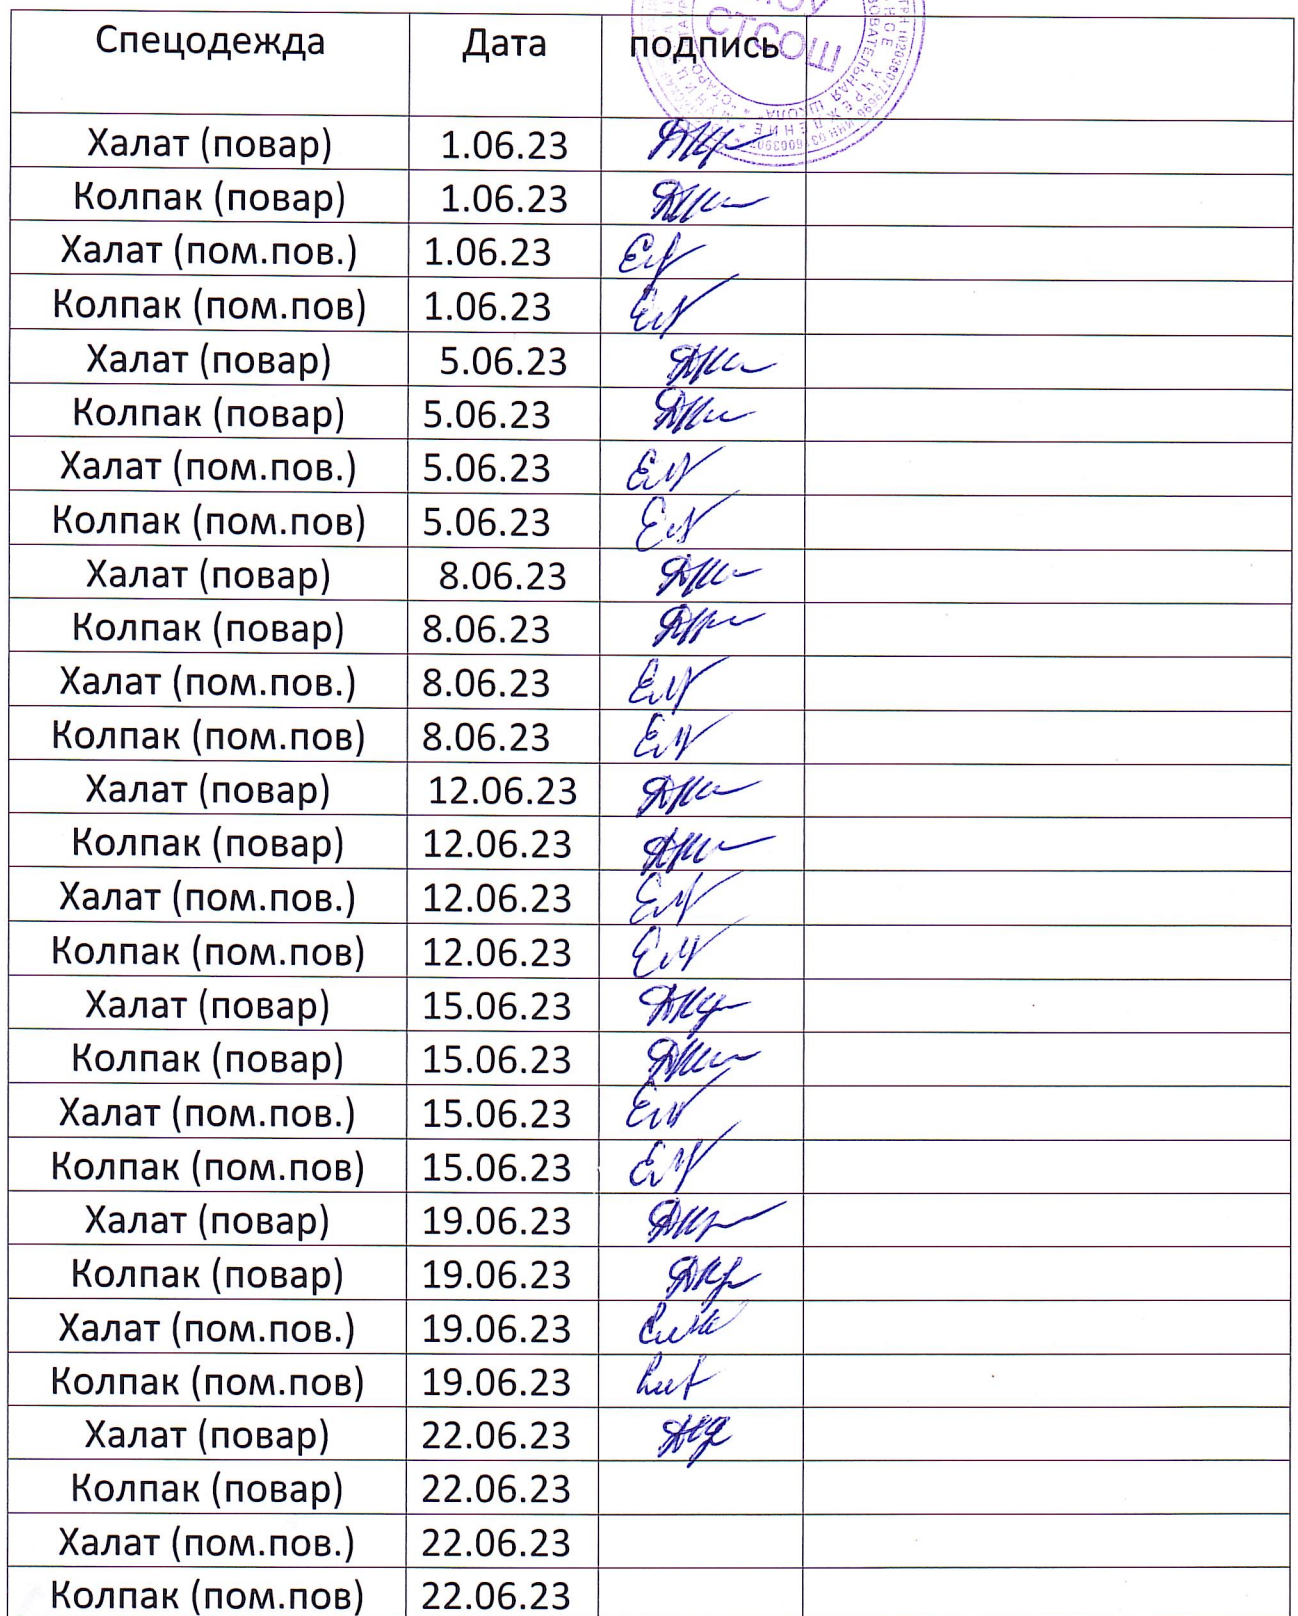 Спецодежда Дата подпись
СТСОШ
Халат (повар) 1.06.23
Колпак (повар) 1.06.23
Халат (пом.пов.) 1.06.23
Колпак (пом.пов) 1.06.23
Халат (повар) 5.06.23
Колпак (повар) 5.06.23
Халат (пом.пов.) 5.06.23
Колпак (пом.пов) 5.06.23
Халат (повар) 8.06.23
Колпак (повар) 8.06.23
Халат (пом.пов.) 8.06.23
Колпак (пом.пов) 8.06.23
Халат (повар) 12.06.23
Колпак (повар) 12.06.23
Халат (пом.пов.) 12.06.23
Колпак (пом.пов) 12.06.23
Халат (повар) 15.06.23
Колпак (повар) 15.06.23
Халат (пом.пов.) 15.06.23
Колпак (пом.пов) 15.06.23
Халат (повар) 19.06.23
Колпак (повар) 19.06.23
Халат (пом.пов.) 19.06.23
Колпак (пом.пов) 19.06.23
Халат (повар) 22.06.23
Колпак (повар) 22.06.23
Халат (пом.пов.) 22.06.23
Колпак (пом.пов) 22.06.23